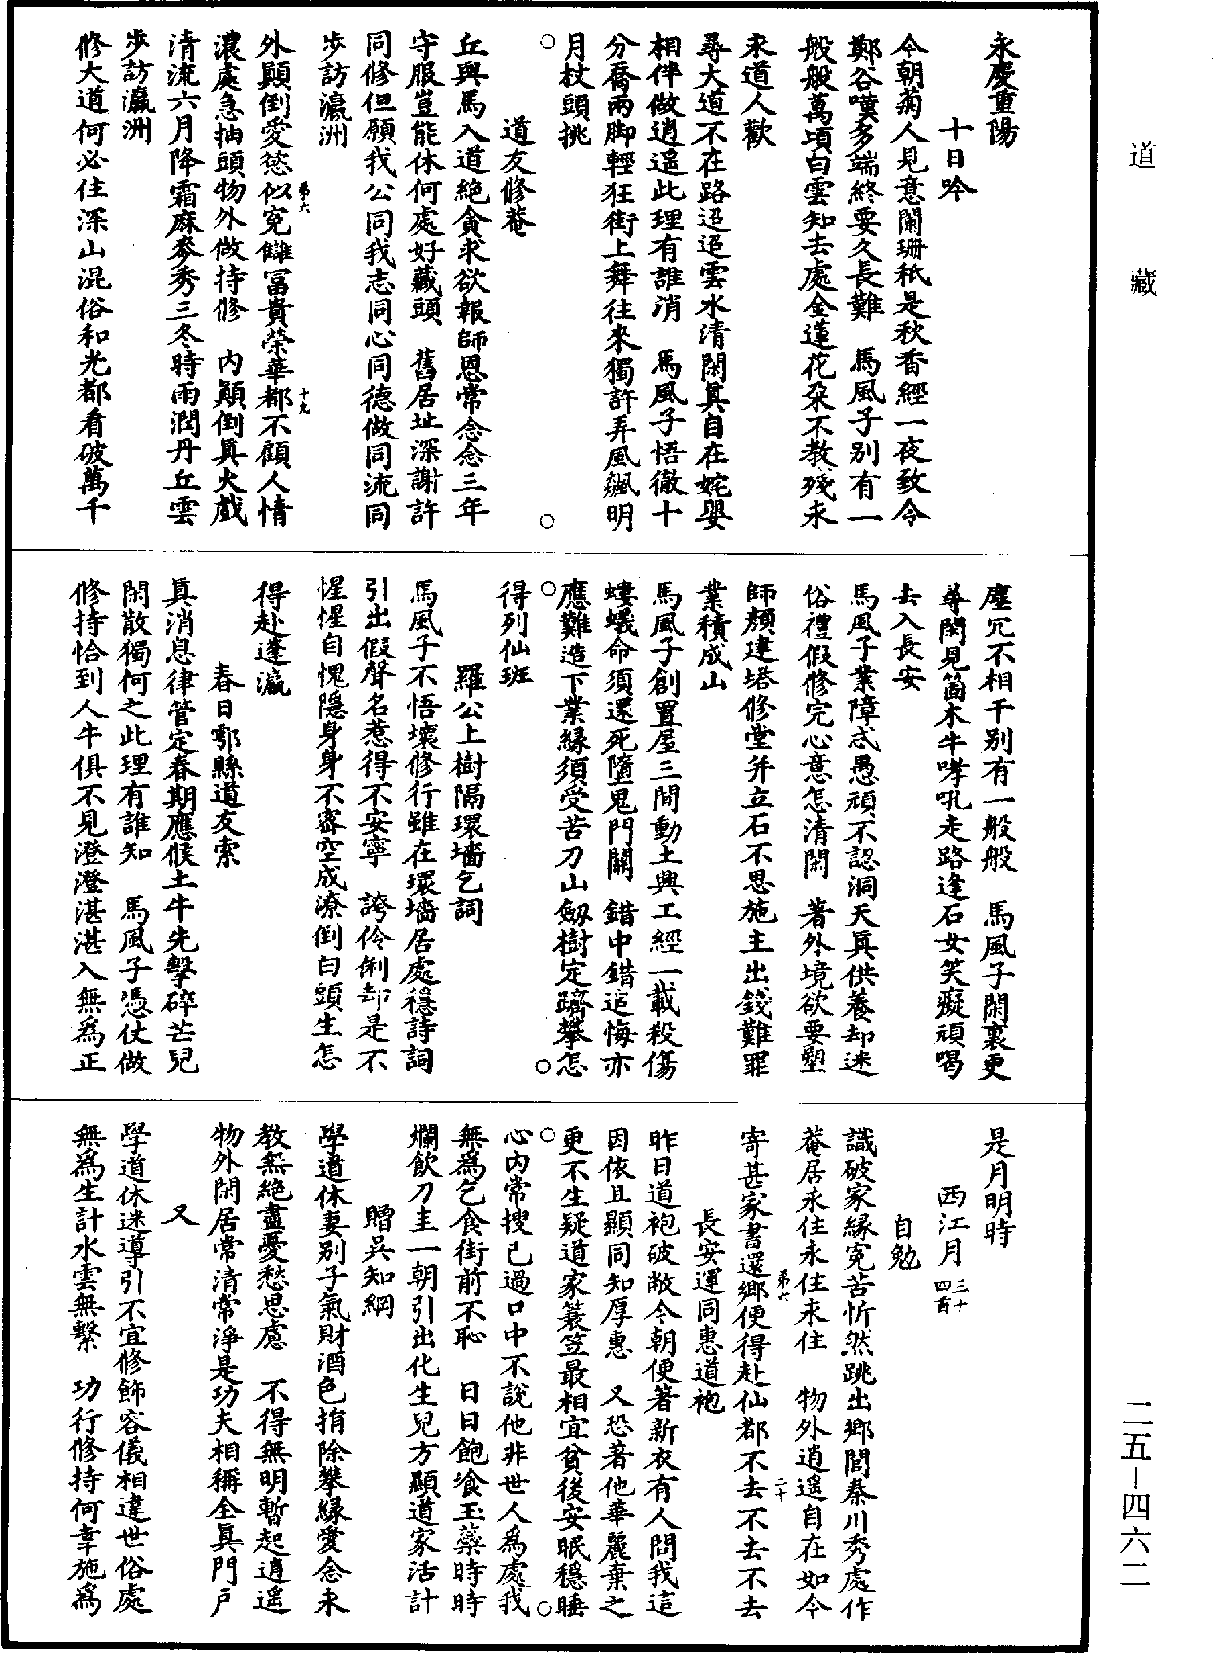 道藏
二五—四六二
永慶重陽
十日吟
今朝菊人見意闌珊秖是秋香經一夜致令
鄭谷嘆多端終要久長難　馬風子別有一
般般萬頃白雲知去處金蓮花朶不教殘永
永道人歡
尋大道不在路迢迢雲水清閑真自在姹嬰
相伴做逍遥此理有誰消　馬風子悟徹十
分喬兩脚輕狂街上舞往來獨許弄風飆明
月杖頭挑
道友修菴
丘與馬入道絶貪求欲報師恩常念念三年
守服豈能休何處好藏頭　舊居址深謝許
同修但願我公同我志同心同德做同流同
步訪瀛洲
外顛倒愛慾似冤讎冨貴榮華都不顧人情
弟六
十九
濃處急抽頭物外做持修　内顛倒真火戲
清流六月降霜麻麥秀三冬時雨潤丹丘雲
步訪瀛洲
修大道何必住深山混俗和光都看破萬千
塵冗不相干別有一般般　馬風子閑裏更
尋閑見箇木牛哮吼走路逢石女笑癡頑喝
去入長安
馬風子業障忒愚頑不認洞天真供養却迷
俗禮假修完心意怎清閑　著外境欲要塑
師顏建塔修堂并立石不思施主出錢難罪
業積成山
馬風子創置屋三間動土興工經一載殺傷
螻蟻命須還死墮鬼門關　錯中錯追悔亦
應難造下業緣須受苦刀山劔樹定躋攀怎
得列仙班
羅公上樹隔環墻乞詞
馬風子不悟壞修行雖在環墻居處穩詩詞
引出假聲名惹得不安寧　誇伶俐却是不
惺惺自愧隱身身不密空成潦倒白頭生怎
得赴蓬瀛
春日鄠縣道友索
真消息律管定春期應候土牛先擊碎芒兒
閑散獨何之此理有誰知　馬風子憑仗做
修持恰到人牛俱不見澄澄湛湛入無為正
是月明時
西江月三十四首
自勉
識破家緣寃苦忻然跳出鄉閭秦川秀處作
菴居永住永住永住　物外逍遥自在如今
寄甚家書還鄉便得赴仙都不去不去不去
弟七
二十
長安運同惠道袍
昨日道袍破敝今朝便著新衣有人問我這
因依且顯同知厚惠　又恐著他華麗棄之
更不生疑道家蓑笠最相宜貧後安眠穩睡
心内常搜已過口中不說他非世人為處我
無為乞食街前不恥　日日飽飡玉蘂時時
爛飲刀圭一朝引出化生兒方顯道家活計
贈吳知綱
學道休妻別子氣財酒色捐除攀緣愛念永
教無絶盡憂愁思慮　不得無明暫起逍遥
物外閑居常清常淨是功夫相稱全真門户
又
學道休迷導引不宜修飾容儀相違世俗處
無為生計水雲無繫　功行修持何幸施為